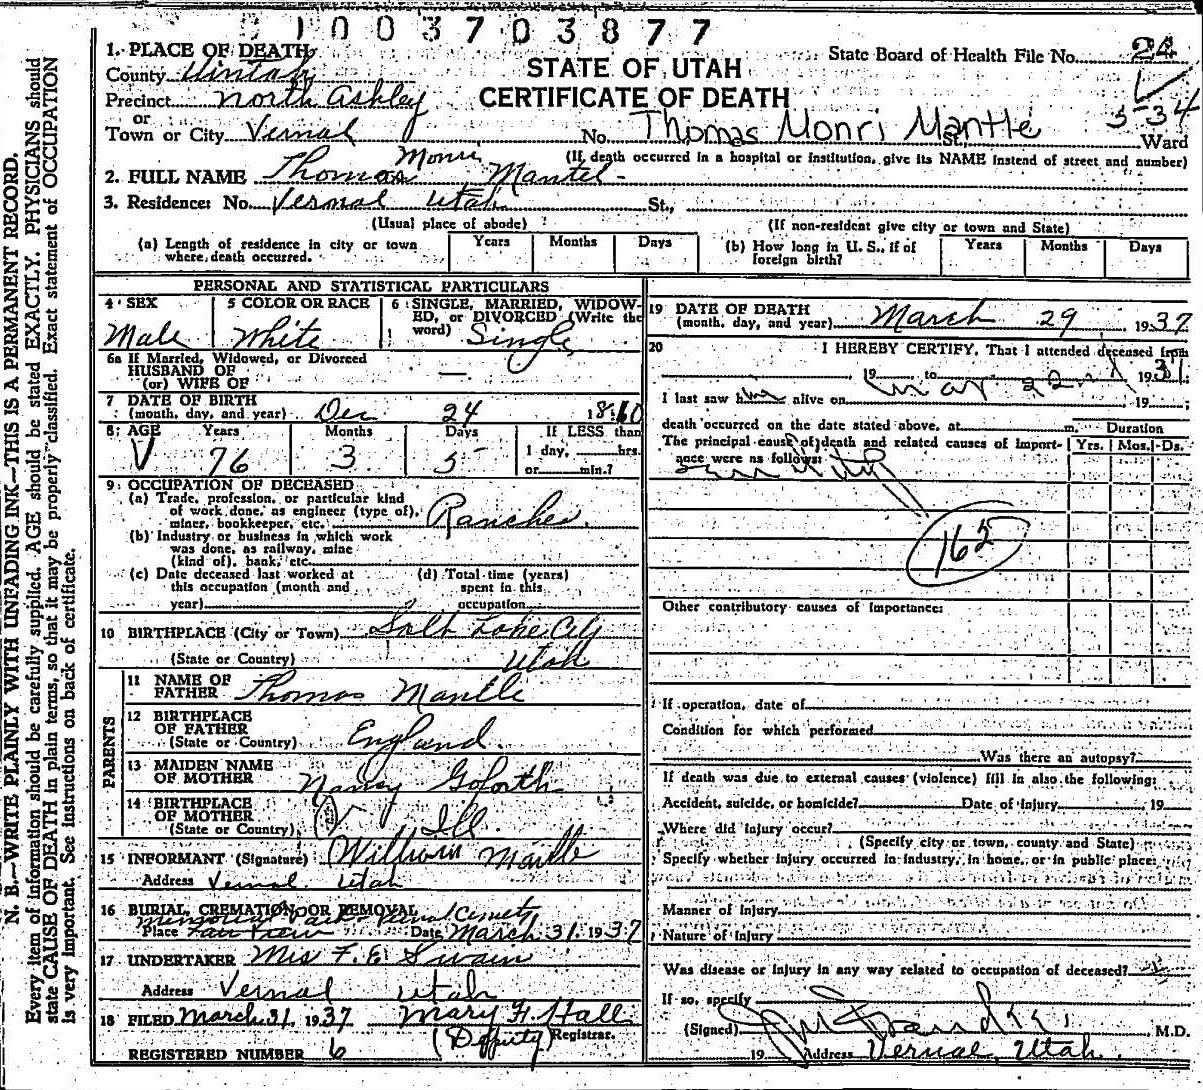 1003703877
1. PLACE OF DEATH
State Board of Health File No. 24
County Uintah
STATE OF UTAH
Precinct North Ashley
CERTIFICATE OF DEATH
5-34
or
Town or City Vernal No. Thomas Monri Mantle St., Ward
(If death occurred in a hospital or institution, give its NAME instead of street and number)
2. FULL NAME Thomas Monri Mantel
3. Residence: No. Vernal Utah St.,
(Usual place of abode) (If non-resident give city or town and State)
(a) Length of residence in city or town where death occurred. Years Months Days
(b) How long in U. S., if of foreign birth? Years Months Days
PERSONAL AND STATISTICAL PARTICULARS
4 SEX Male
5 COLOR OR RACE White
6 SINGLE, MARRIED, WIDOWED, or DIVORCED (Write the word) Single
6a If Married, Widowed, or Divorced
HUSBAND OF
(or) WIFE OF —
7 DATE OF BIRTH
(month, day, and year) Dec 24 1860
8 AGE Years Months Days If LESS than
V 76 3 5 1 day, hrs.
or min.?
9 OCCUPATION OF DECEASED
(a) Trade, profession, or particular kind
of work done, as engineer (type of),
miner, bookkeeper, etc. Rancher
(b) Industry or business in which work
was done, as railway, mine
(kind of), bank, etc.
(c) Date deceased last worked at
this occupation (month and
year)
(d) Total time (years)
spent in this
occupation
10 BIRTHPLACE (City or Town) Salt Lake City
(State or Country) Utah
PARENTS
11 NAME OF
FATHER Thomas Mantle
12 BIRTHPLACE
OF FATHER
(State or Country) England
13 MAIDEN NAME
OF MOTHER Nancy Goforth
14 BIRTHPLACE
OF MOTHER
(State or Country) Ill
15 INFORMANT (Signature) William Mantle
Address Vernal Utah
16 BURIAL, CREMATION, OR REMOVAL
Memorial Park Vernal Cemetery
Place Fair View Date March 31, 1937
17 UNDERTAKER Mrs F. E. Swain
Address Vernal Utah
18 FILED March 31, 1937 Mary F. Hall
(Deputy) Registrar.
REGISTERED NUMBER 6
19 DATE OF DEATH
(month, day, and year) March 29, 1937
20 I HEREBY CERTIFY, That I attended deceased from
, 19 , to Mar 22nd 193
I last saw h alive on , 19 ;
death occurred on the date stated above, at m.
Duration
The principal cause of death and related causes of importance were as follows: Yrs. Mos. Ds.
165
Other contributory causes of importance:
If operation, date of
Condition for which performed
Was there an autopsy?
If death was due to external causes (violence) fill in also the following:
Accident, suicide, or homicide? Date of injury , 19
Where did injury occur?
(Specify city or town, county and State)
Specify whether injury occurred in industry, in home, or in public place:
Manner of Injury
Nature of Injury
Was disease or injury in any way related to occupation of deceased?
If so, specify
(Signed) , M.D.
19 Address Vernal, Utah.
N. B.—WRITE PLAINLY WITH UNFADING INK—THIS IS A PERMANENT RECORD.
Every item of information should be carefully supplied. AGE should be stated EXACTLY. PHYSICIANS should
state CAUSE OF DEATH in plain terms, so that it may be properly classified. Exact statement of OCCUPATION
is very important. See instructions on back of certificate.